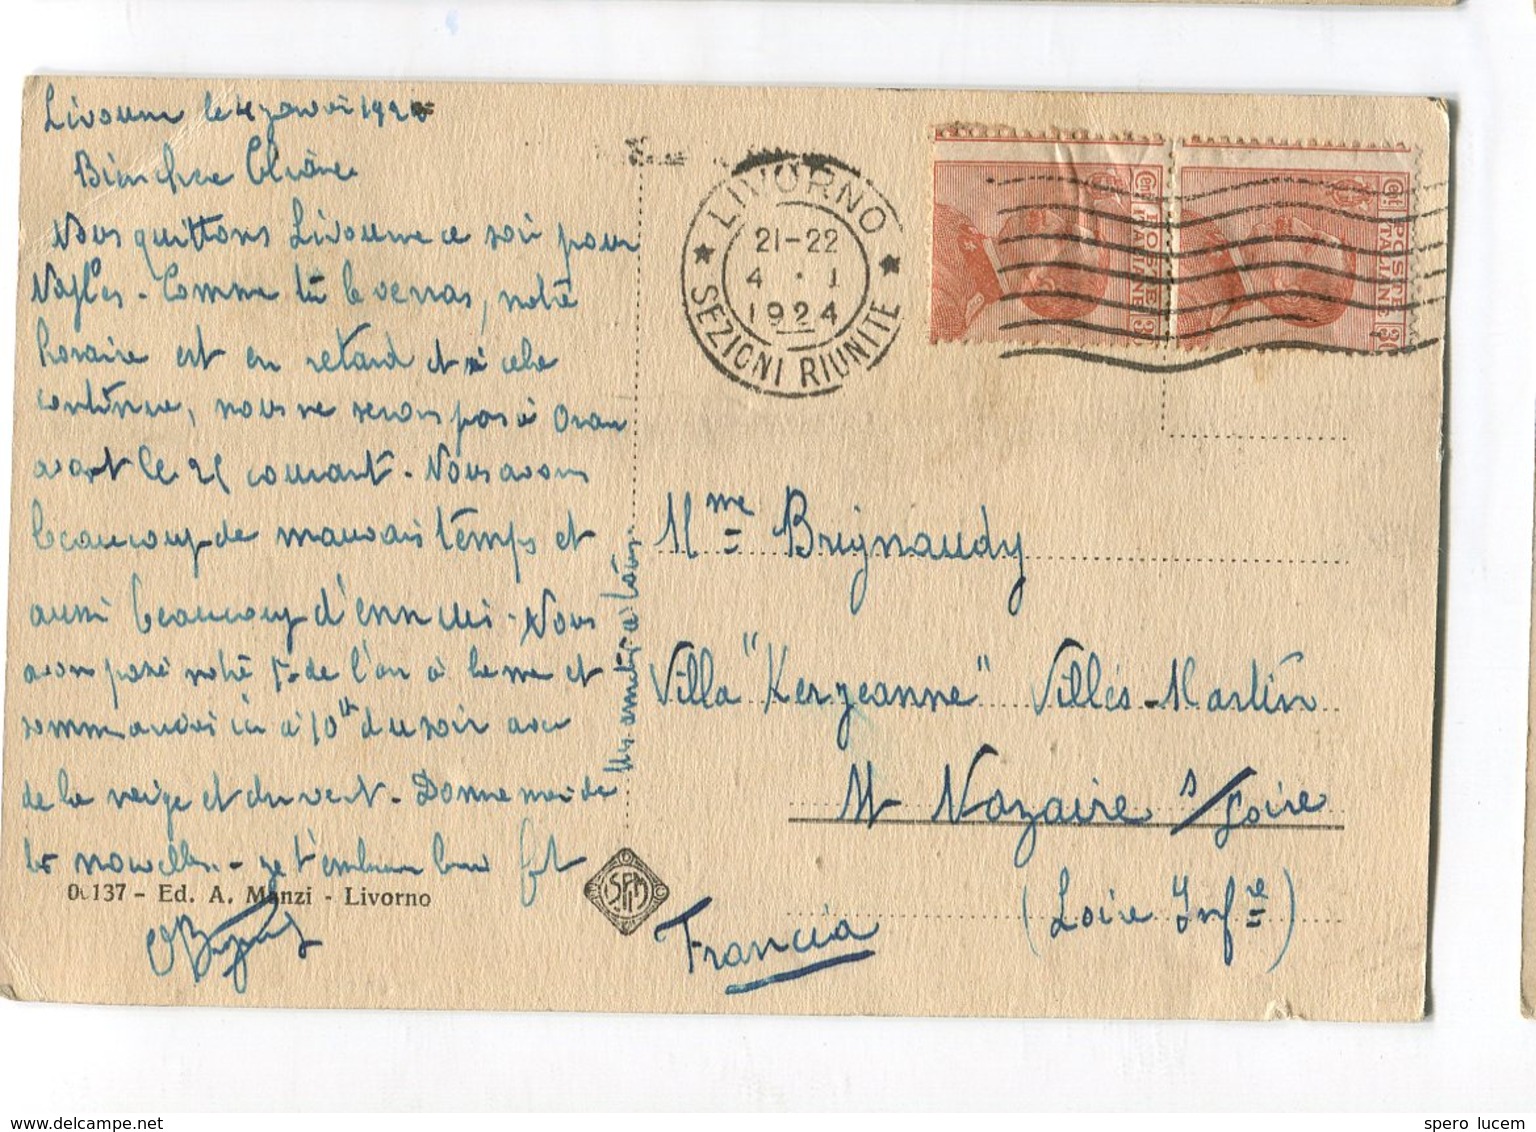 Livourne le 4 janvier 192
Bien chère
Nous quittons Livourne ce soir pour
Naples - Comme tu le verras, notre
horaire est en retard et si cela
continue, nous ne serons pas à Oran
avant le 25 courant - Nous avons
beaucoup de mauvais temps et
aussi beaucoup d'ennuis - Nous
avons passé notre 1er de l'an à la mer et
sommes arrivés ici à 10h du soir avec
de la neige et du vent - Donne moi de
tes nouvelles - je t'embrasse bien fort
00137 - Ed. A. Manzi - Livorno
LIVORNO
21-22
4 · 1
1924
SEZIONI RIUNITE
POSTE ITALIANE Cent. 30
POSTE ITALIANE Cent. 30
Mme Brignaudy
Villa "Kerjeanne" Villès-Martin
St Nazaire s/Loire
(Loire Infre)
Francia
spero lucem